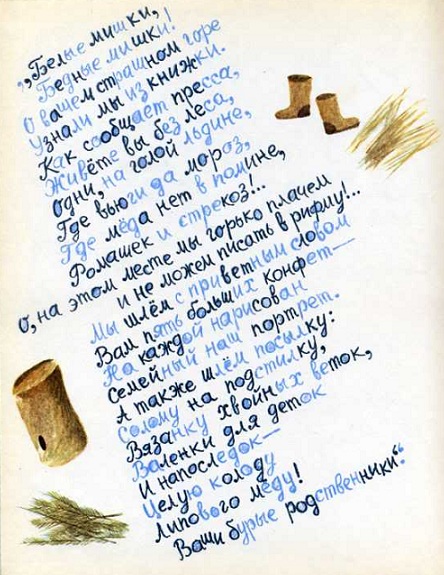 „Белые мишки,
Бедные мишки!
О вашем страшном горе
Узнали мы из книжки.
Как сообщает пресса,
Живёте вы без леса,
Одни, на голой льдине,
Где вьюги да мороз,
Где мёда нет в помине,
Ромашек и стрекоз!..
О, на этом месте мы горько плачем
и не можем писать в рифму!..
Мы шлём с приветным словом
Вам пять больших конфет—
На каждой нарисован
Семейный наш портрет.
А также шлём посылку:
Солому на подстилку,
Вязанку хвойных веток,
Валенки для деток
И напоследок—
Целую колоду
Липового мёду!
Ваши бурые родственники“.